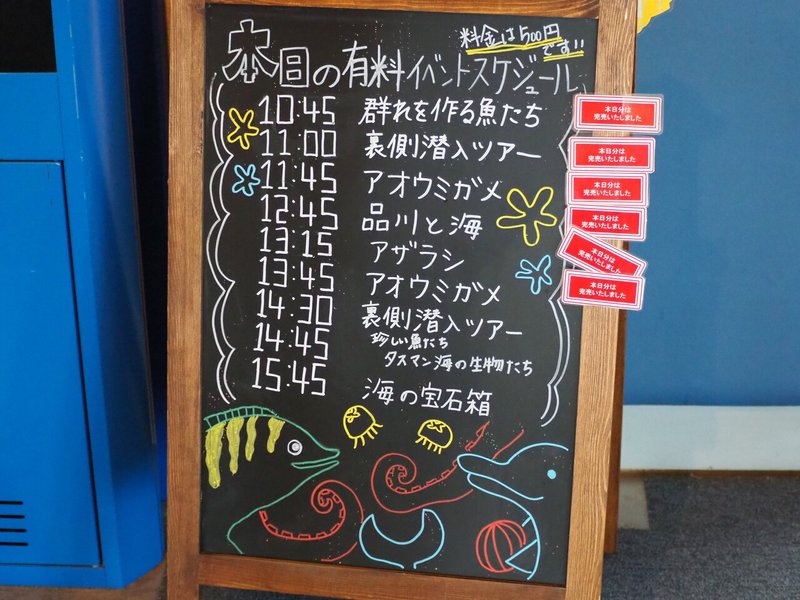 料金は500円
です!!
本日の有料イベントスケジュール
10:45 群れを作る魚たち
本日分は
完売いたしました
11:00 裏側潜入ツアー
本日分は
完売いたしました
11:45 アオウミガメ
本日分は
完売いたしました
12:45 品川と海
本日分は
完売いたしました
13:15 アザラシ
本日分は
完売いたしました
13:45 アオウミガメ
本日分は
完売いたしました
14:30 裏側潜入ツアー
14:45 珍しい魚たち
タスマン海の生物たち
15:45 海の宝石箱